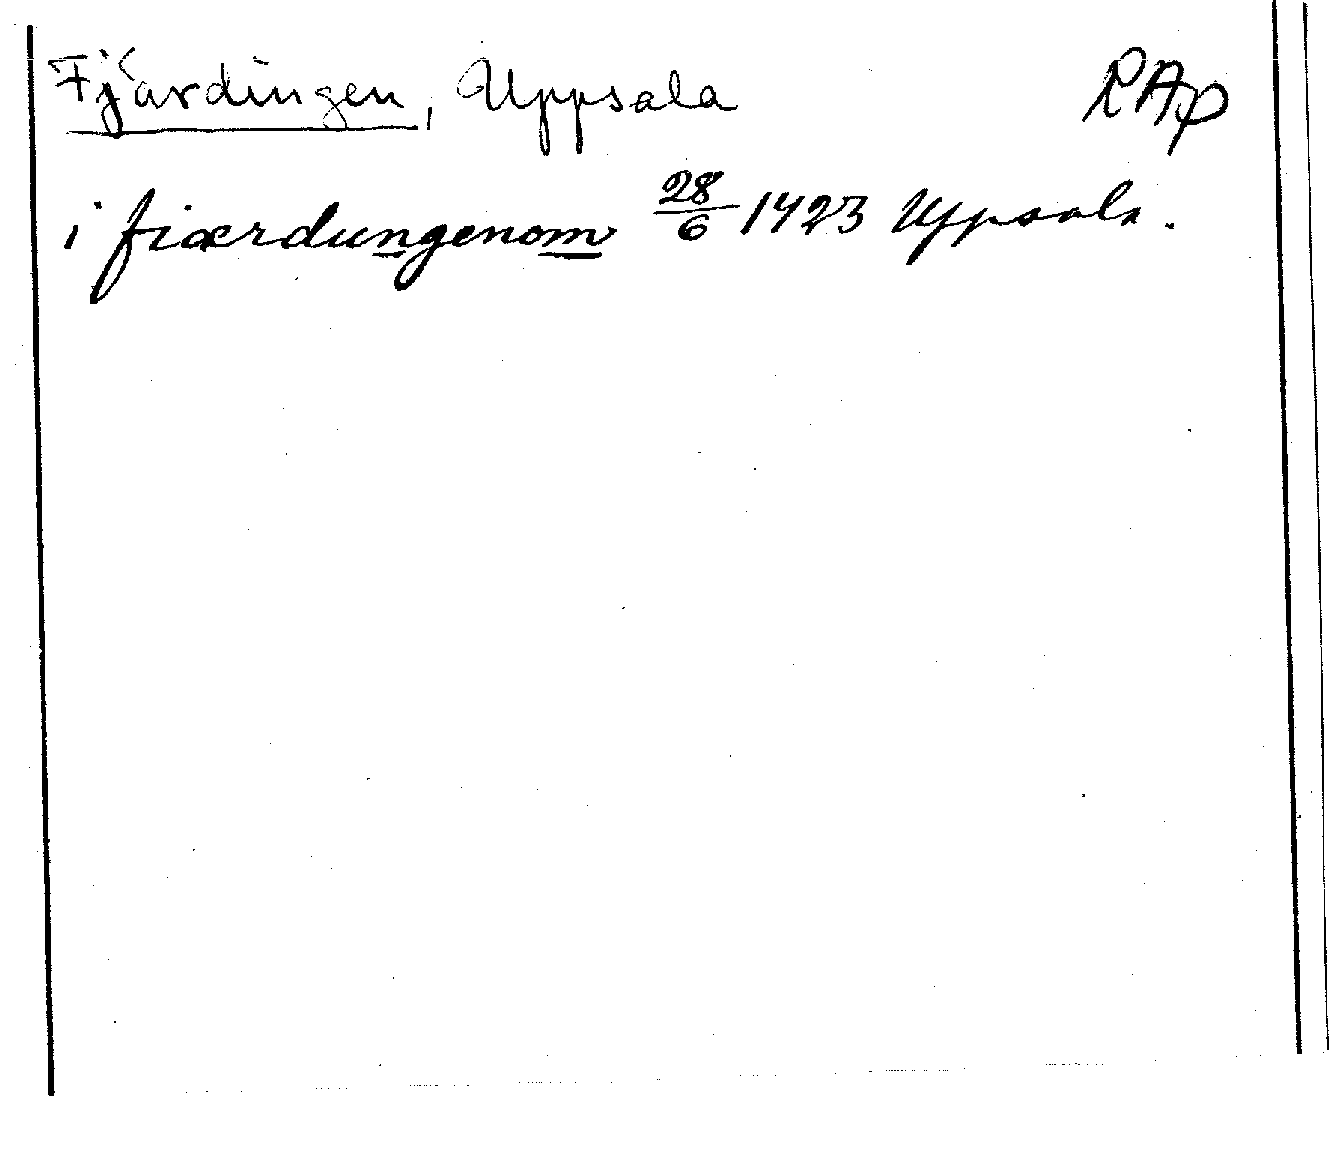 Fjärdingen, Uppsala RAp
i fiærdungenom 28/6 1423 Uppsala.